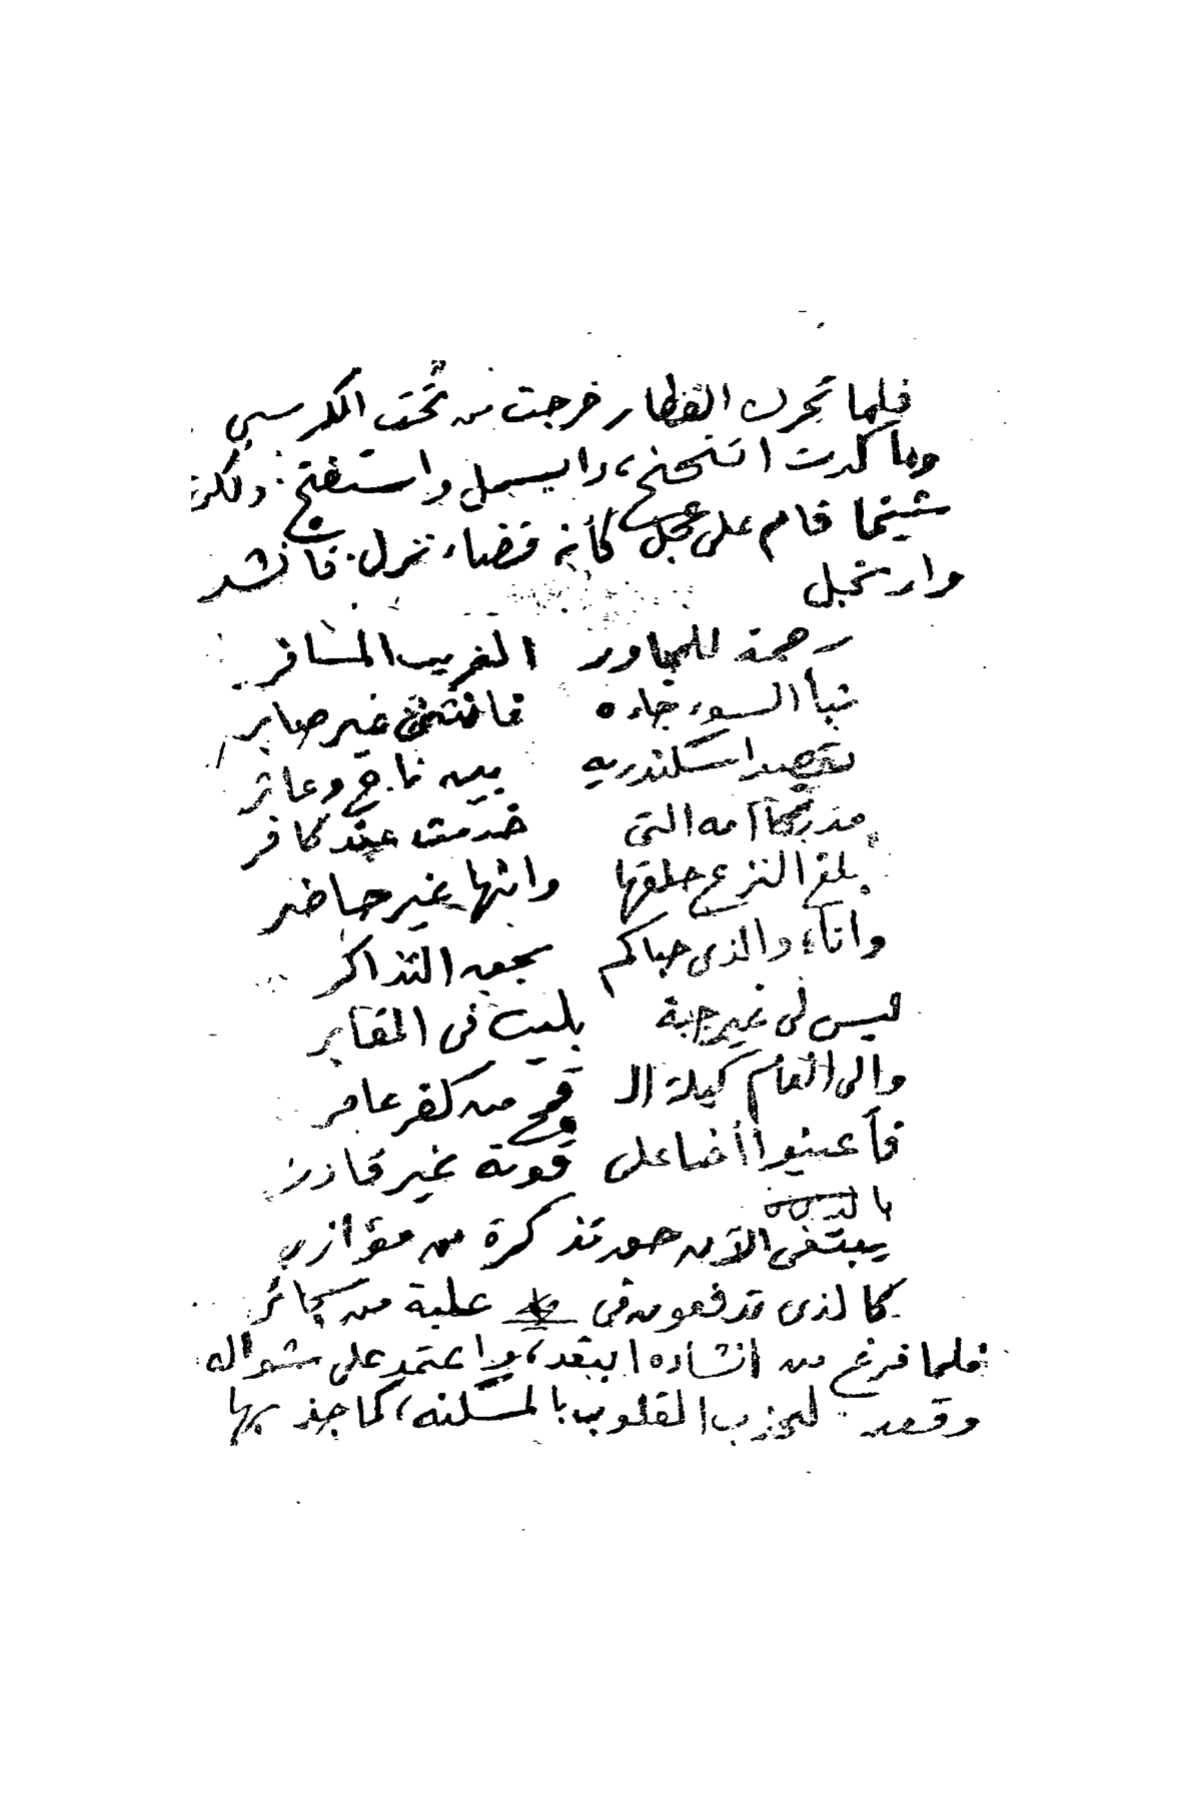 فلما تحرك القطار خرجت من تحت الكرسي
وما كدت اتنحنح، وابسمل واستفتح. ولكن
شيخا قام على عجل كأنه قضاء نزل. فانشد
وارتجل
رحمة للمجاور الغريب المسافر
نبأ السوء جاءه فانثنى غير صابر
يقصد اسكندريه بين ناج وعاثر
مدركا امه التى خدمت عند كافر
بلغ النزع حلقها وابنها غير حاضر
وانا، والذى حباكم بجمع التذاكر
ليس لى غير جبة بليت فى المقابر
والى العام كيلة الـ قمح من كفر عامر
فأعينوا أخا على قوته غير قادر
يبتغى الآن حق تذكرة من مؤازر
كالذى تدفعون فى علبة من سجائر
فلما فرغ من انشاده ابتعد، واعتمد على شواله
وقعد ليجذب القلوب بالمسكنه، كما جذبها